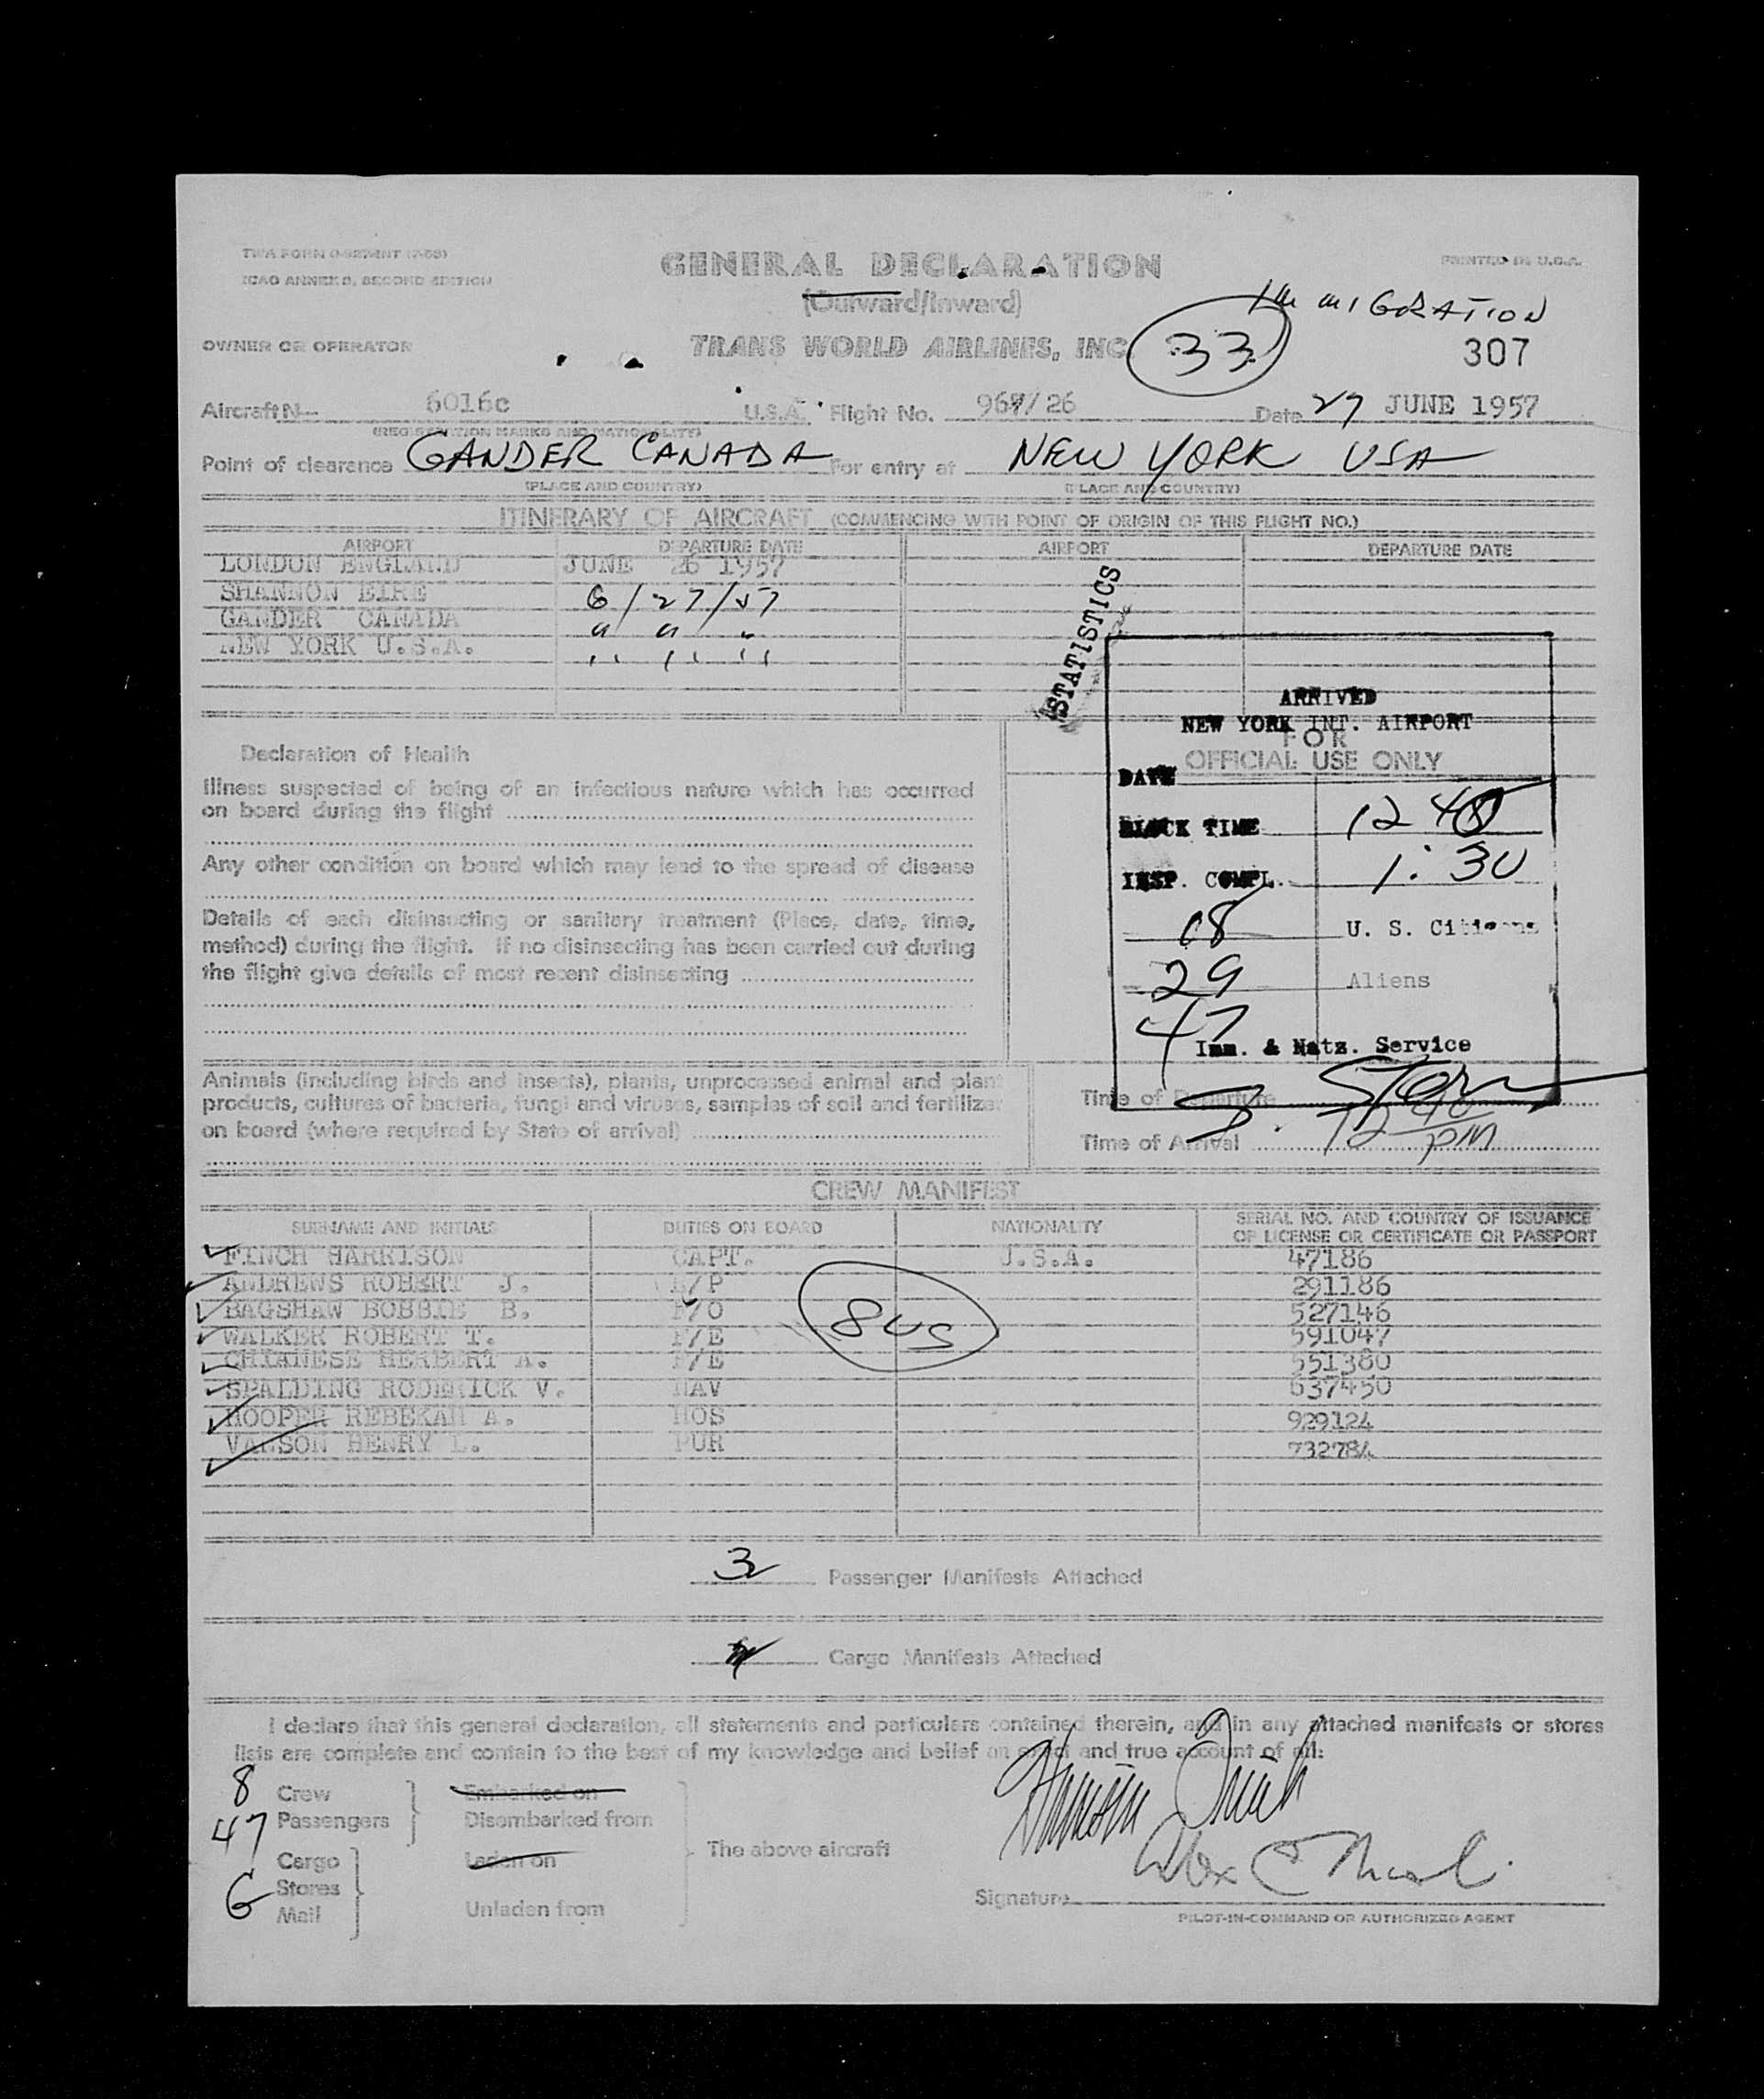 GENERAL DECLARATION
PRINTED IN U.S.A.
ICAO ANNEX 9, SECOND EDITION
(Outward/Inward)
IMMIGRATION
OWNER OR OPERATOR
TRANS WORLD AIRLINES, INC.
33
307
Aircraft N— 6016c U.S.A. Flight No. 967/26 Date 27 JUNE 1957
(REGISTRATION MARKS AND NATIONALITY)
Point of clearance GANDER CANADA For entry at NEW YORK USA
(PLACE AND COUNTRY) (PLACE AND COUNTRY)
ITINERARY OF AIRCRAFT (COMMENCING WITH POINT OF ORIGIN OF THIS FLIGHT NO.)
AIRPORT DEPARTURE DATE AIRPORT DEPARTURE DATE
LONDON ENGLAND JUNE 26 1957
SHANNON EIRE 6/27/57
GANDER CANADA " " "
NEW YORK U.S.A. " " "
STATISTICS
ARRIVED
NEW YORK INT. AIRPORT
FOR
OFFICIAL USE ONLY
DATE
BLOCK TIME 12 40
INSP. COMPL. 1:30
18 U. S. Citizens
29 Aliens
47
Imm. & Natz. Service
Declaration of Health
Illness suspected of being of an infectious nature which has occurred
on board during the flight
Any other condition on board which may lead to the spread of disease
Details of each disinsecting or sanitary treatment (Place, date, time,
method) during the flight. If no disinsecting has been carried out during
the flight give details of most recent disinsecting
Animals (including birds and insects), plants, unprocessed animal and plant
products, cultures of bacteria, fungi and viruses, samples of soil and fertilizer
on board (where required by State of arrival)
Time of Departure
Time of Arrival 12 40 pm
CREW MANIFEST
SURNAME AND INITIALS DUTIES ON BOARD NATIONALITY SERIAL NO. AND COUNTRY OF ISSUANCE OF LICENSE OR CERTIFICATE OR PASSPORT
FINCH HARRISON CAPT. U.S.A. 47186
ANDREWS ROBERT J. /P 291186
BAGSHAW BOBBIE B. F/O 527146
WALKER ROBERT T. F/E 591047
CHIANESE HERBERT A. F/E 551380
SPALDING RODERICK V. NAV 637450
HOOPER REBEKAH A. HOS 929124
HENRY L. PUR 732784
8 US
3 Passenger Manifests Attached
Cargo Manifests Attached
I declare that this general declaration, all statements and particulars contained therein, and in any attached manifests or stores
lists are complete and contain to the best of my knowledge and belief an exact and true account of all:
8 Crew Embarked on
47 Passengers Disembarked from
The above aircraft
Cargo Laden on
Stores
Mail Unladen from
Harrison Finch
Signature
PILOT-IN-COMMAND OR AUTHORIZED AGENT